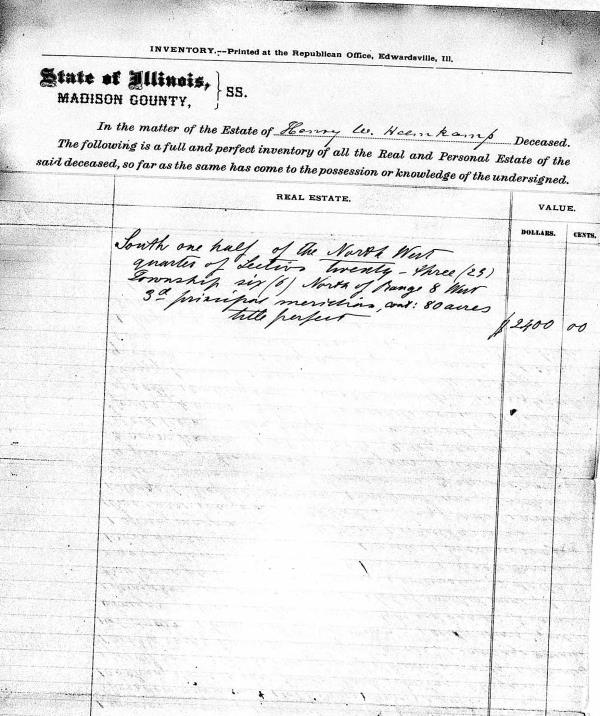 INVENTORY.—Printed at the Republican Office, Edwardsville, Ill.
State of Illinois,
MADISON COUNTY,
SS.
In the matter of the Estate of Henry W. Heemkamp Deceased.
The following is a full and perfect inventory of all the Real and Personal Estate of the
said deceased, so far as the same has come to the possession or knowledge of the undersigned.
REAL ESTATE.
VALUE.
DOLLARS. CENTS.
South one half of the North West
quarter of Section twenty-three (23)
Township six (6) North of Range 8 West
3d principal meridian, cont: 80 acres
title perfect
$2400 00